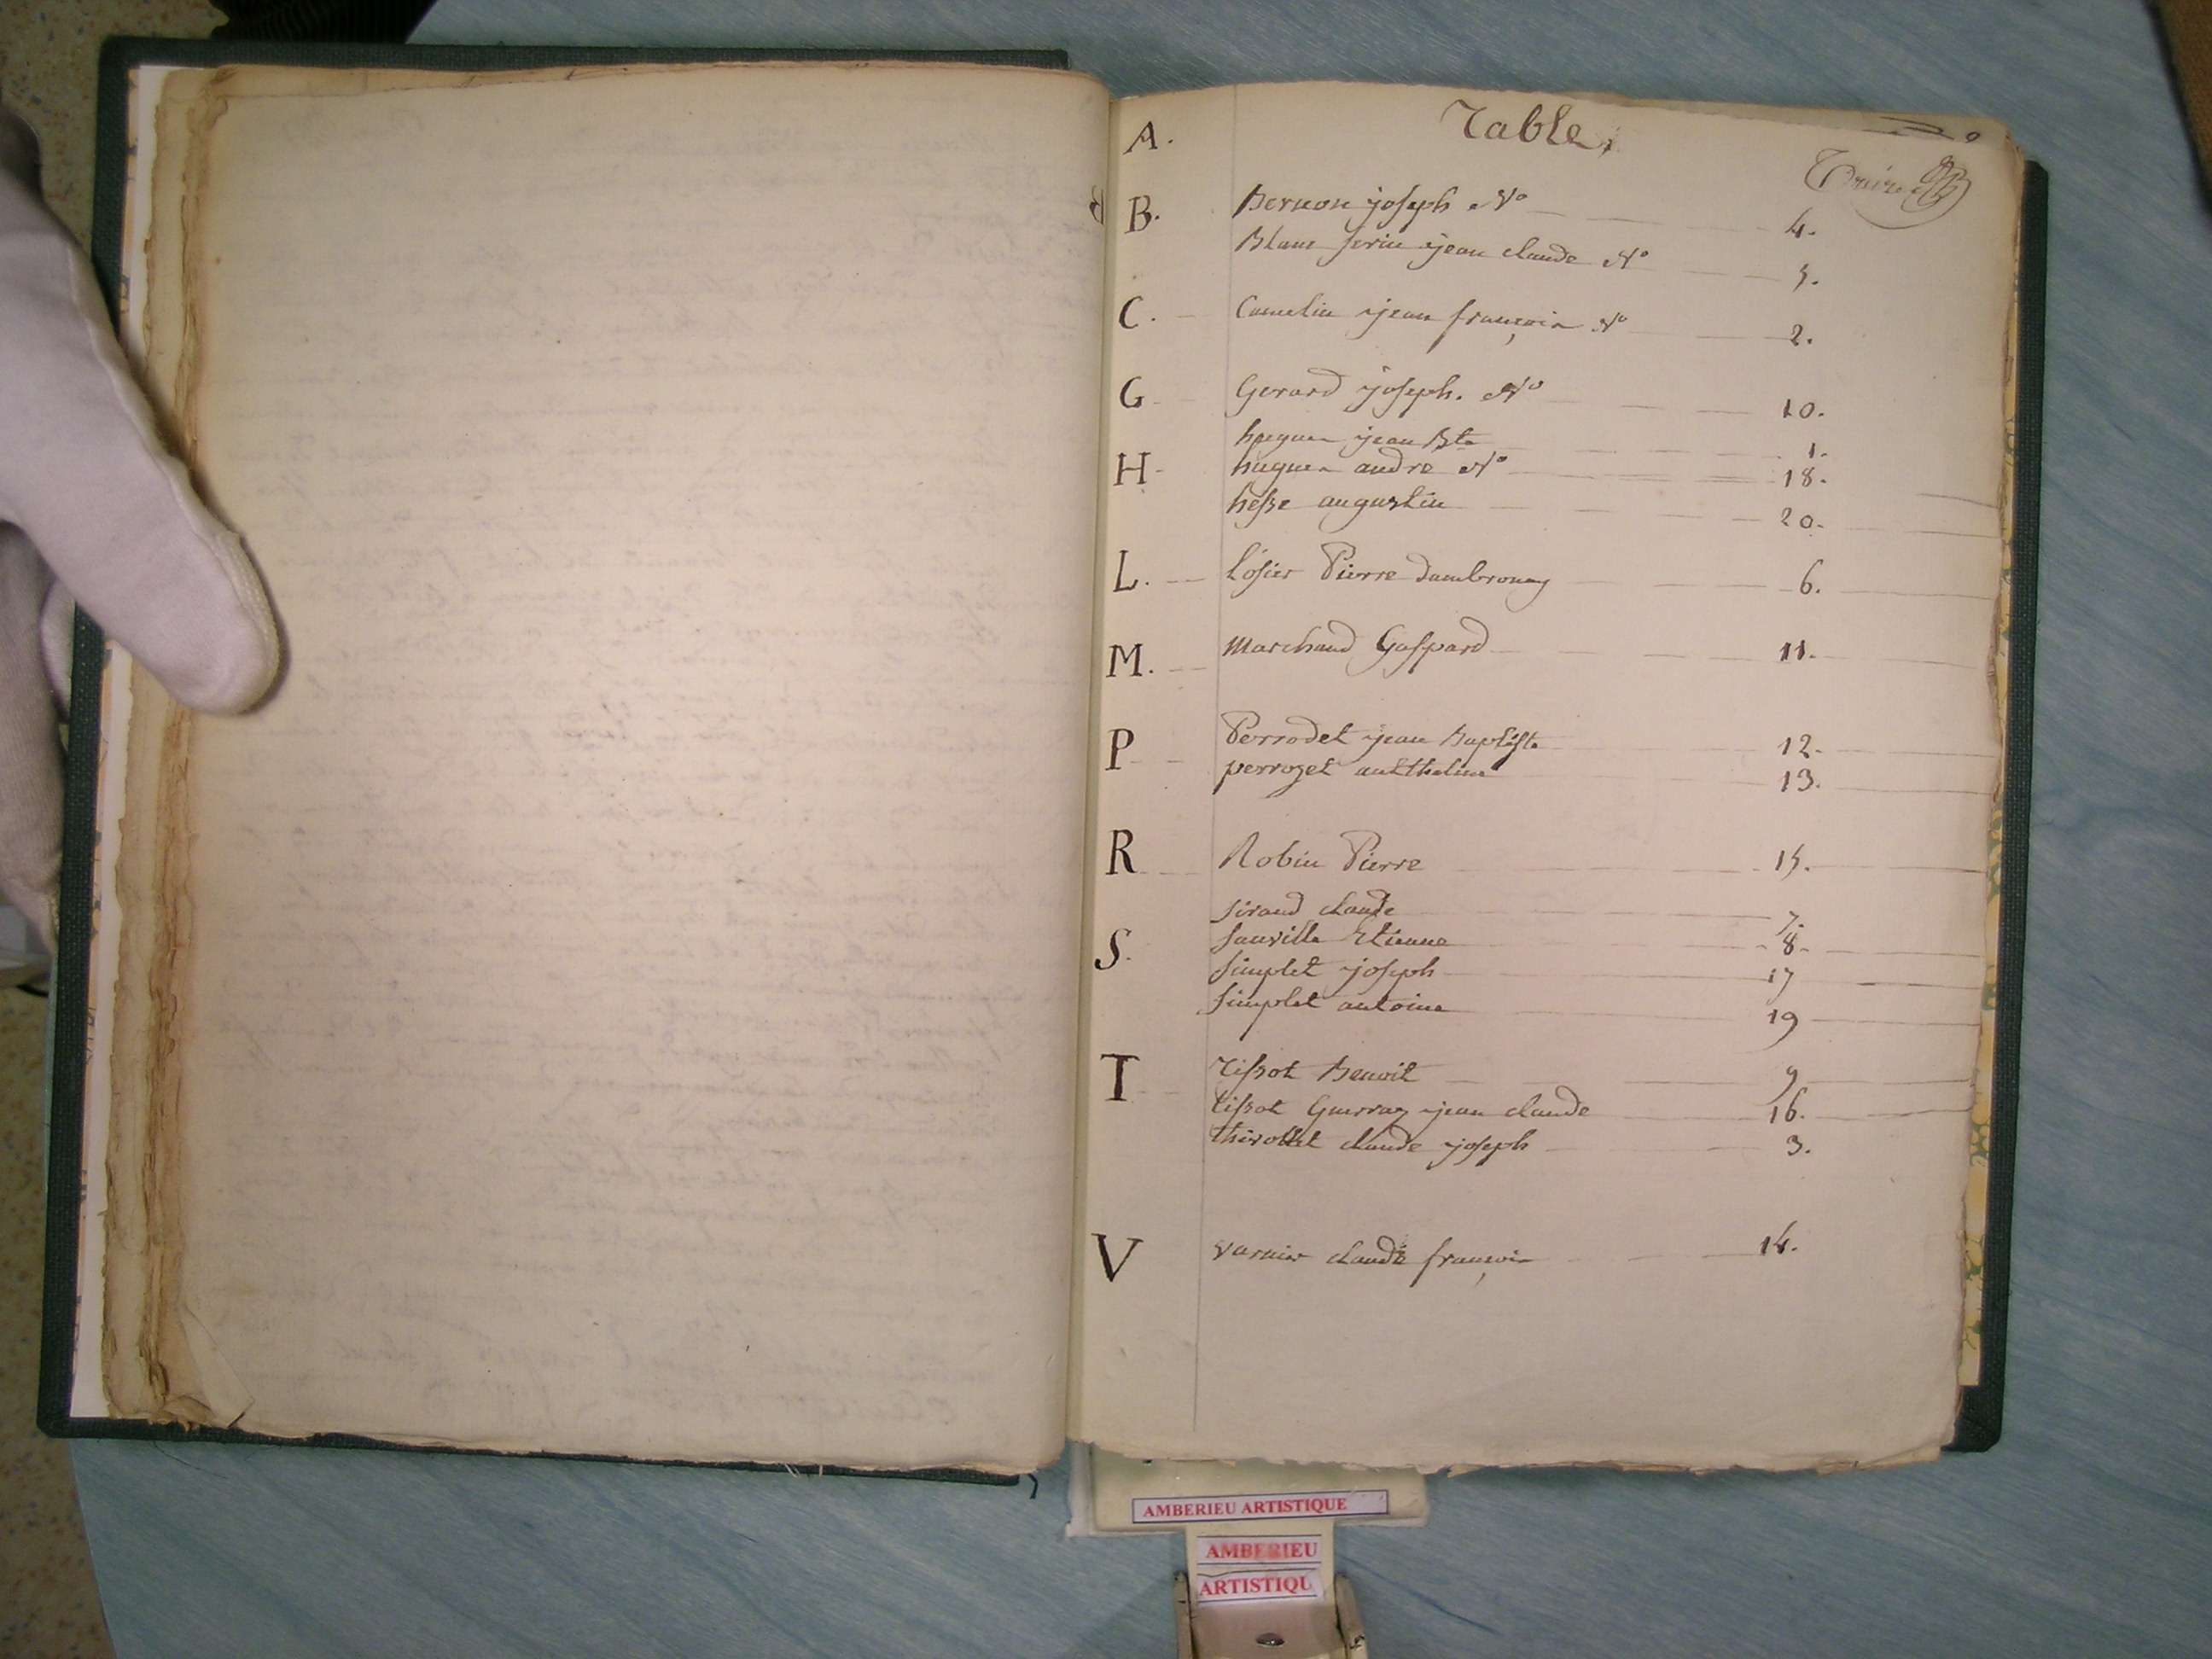 Table,
A.
B. Bernon joseph N° 4.
Blanc ferin jean claude N° 5.
C. Camelin jean françois N° 2.
G Gerard joseph. N° 10.
hugues jean Bte 1.
H hugues andré N° 18.
hesse augustin 20.
L. Losier Pierre dambronay 6.
M. Marchand Gaspard 11.
P Perrodet jean Baptiste 12.
perrozet anthelme 13.
R Robin Pierre 15.
siraud claude 7.
S. sauville Etienne 8
simplet joseph 17
simplet antoine 19
T Tissot Benoit 9
tissot Guerraz jean claude 16.
thirollet claude joseph 3.
V varnier claude françois 14.
AMBERIEU ARTISTIQUE
AMBERIEU
ARTISTIQU